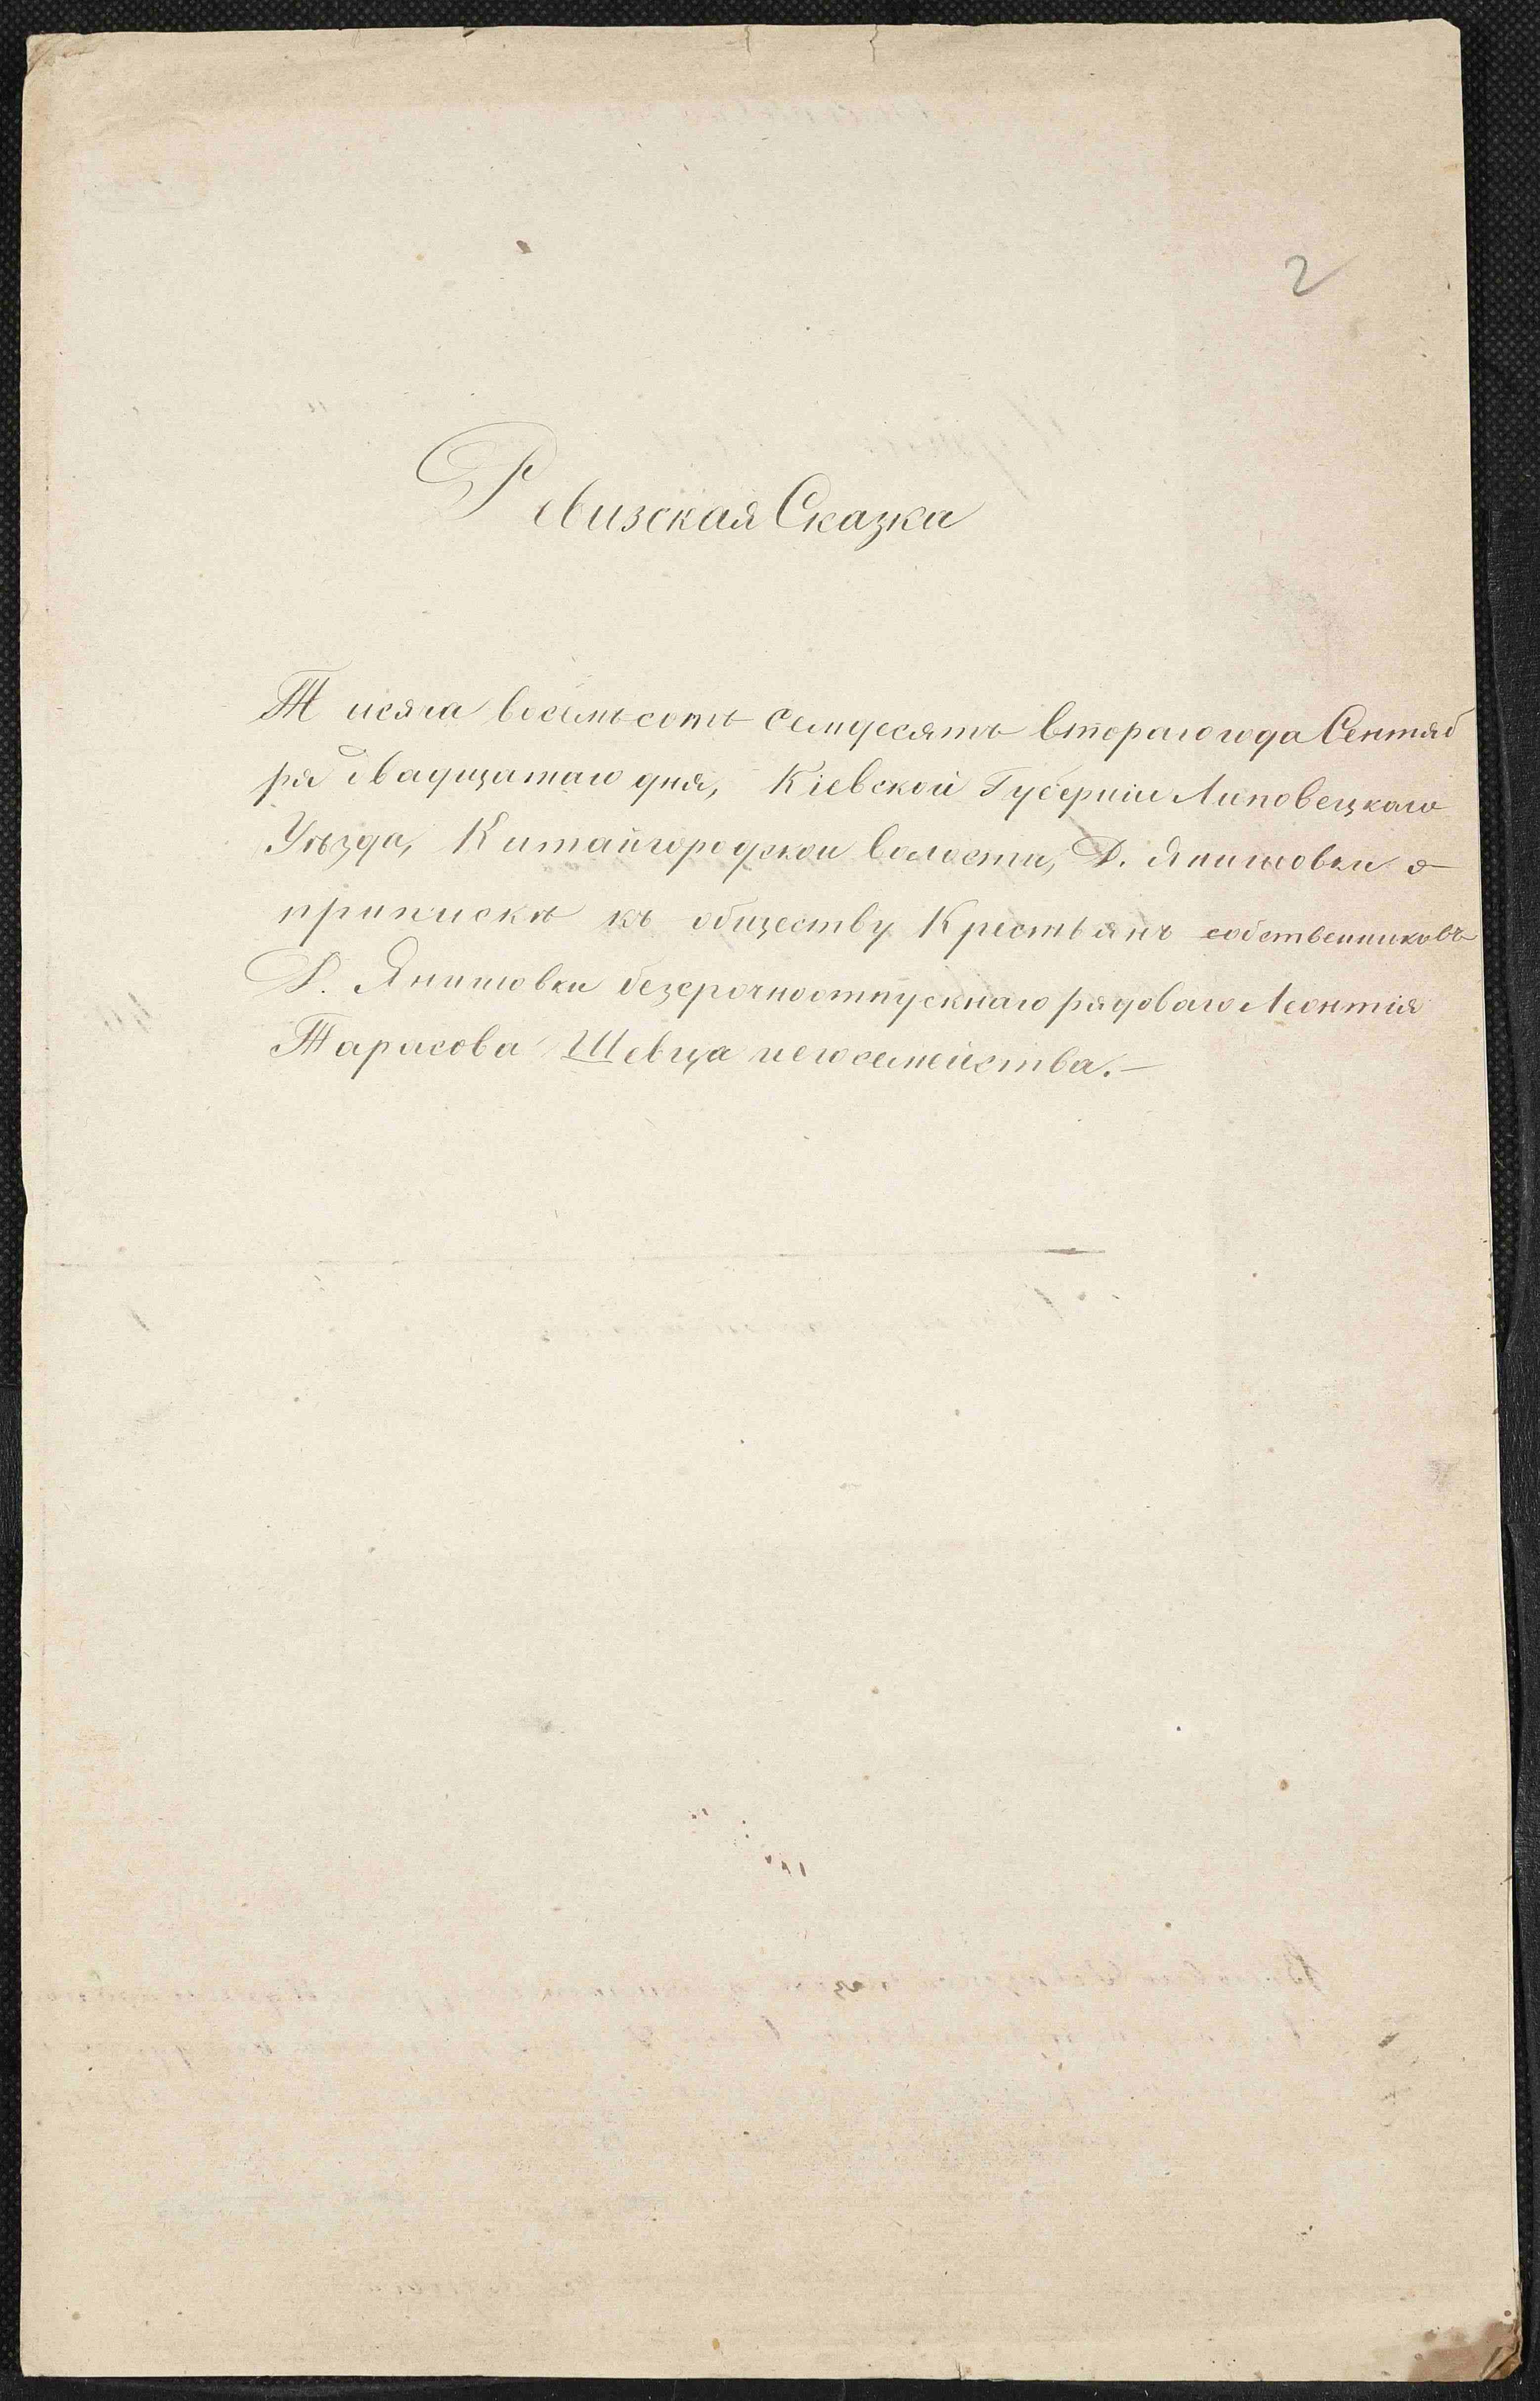 2
Ревизская Сказка
Тисяча восемьсотъ семдесятъ втораго года Сентяб
ря двадцатаго дня, Кіевской Губерніи Липовецкаго
Уѣзда, Китайгородской волости, Д. Янишовки о
припискѣ къ обществу Крестьянъ собственниковъ
Д. Янишовки безсрочноотпускнаго рядоваго Леонтія
Тарасова Шевца и его семейства.—